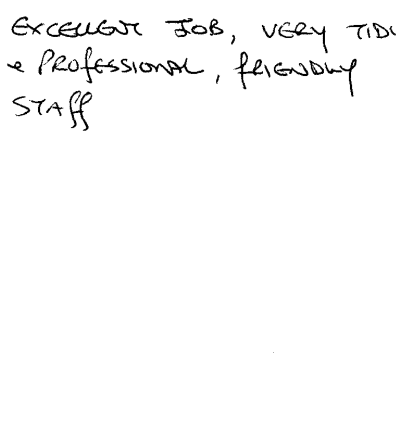 EXCELLENT JOB, VERY TIDY
& PROFESSIONAL, FRIENDLY
STAFF